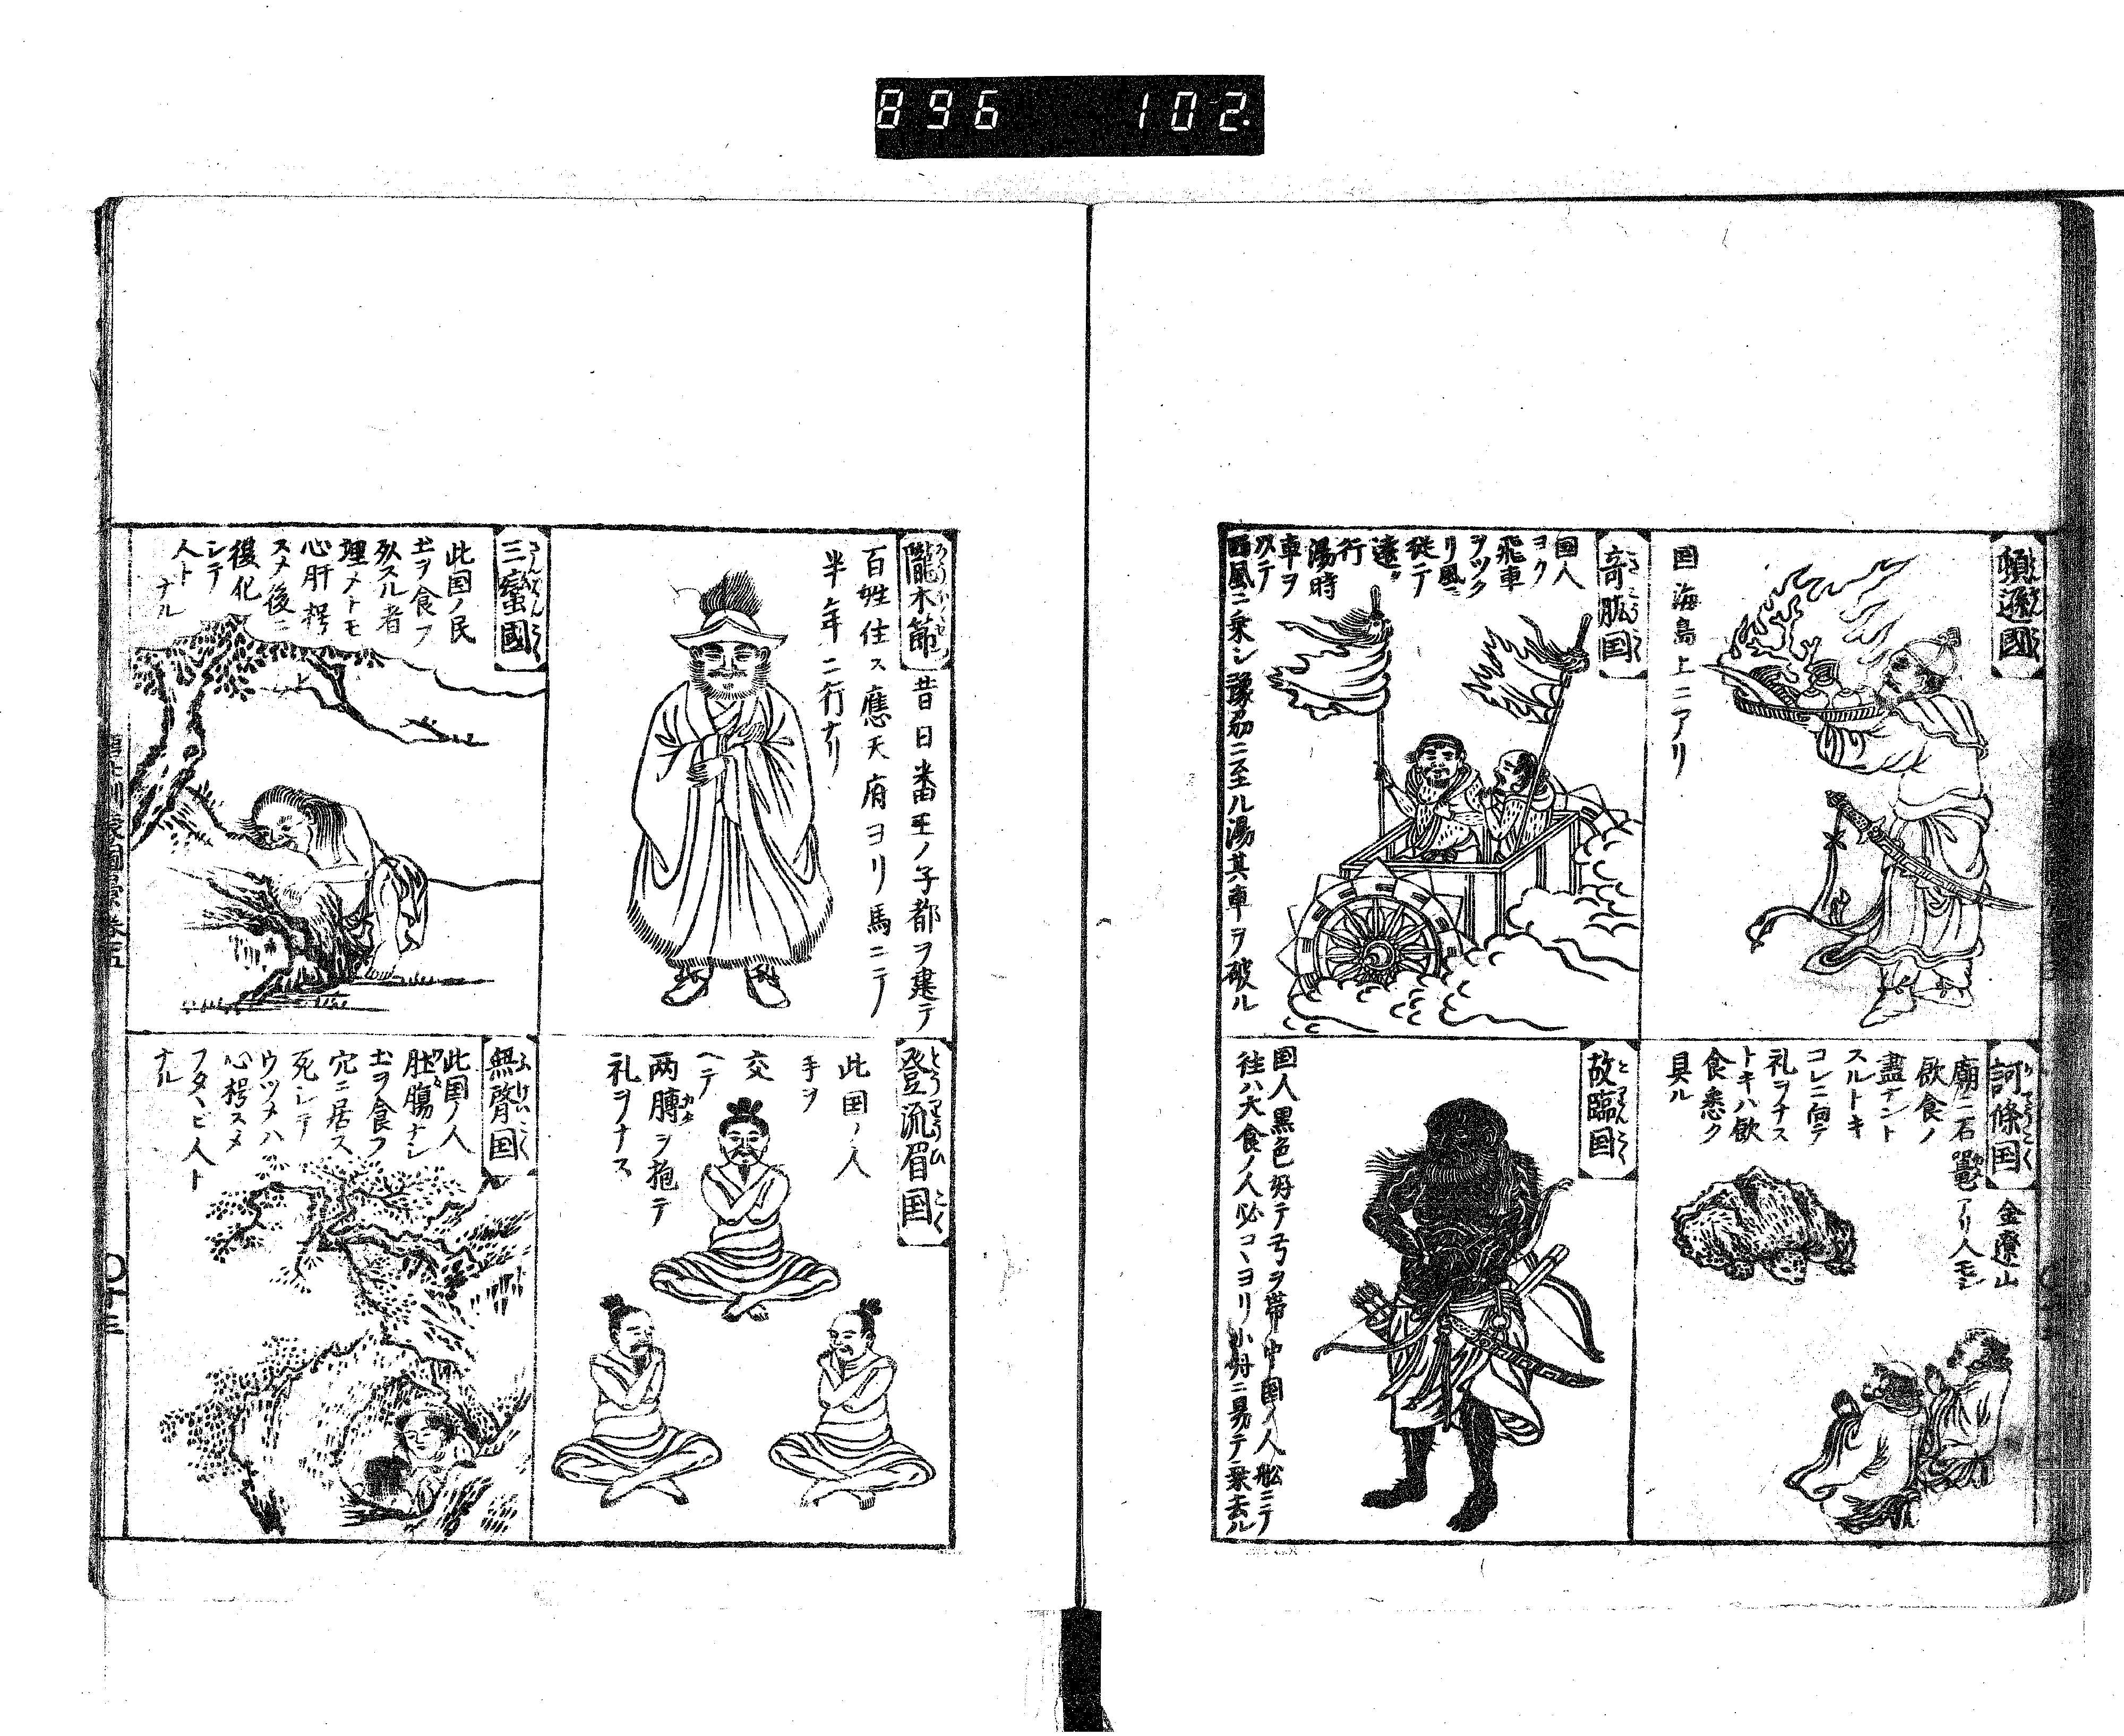 896 102.
頓遜國
国海島上ニアリ
訶條国
金遼山
廟ニ石鼉アリ人モシ
飲食ノ
盡ナント
スルトキ
コレニ向テ
礼ヲナス
トキハ飲
食悉ク
具ル
奇肱国
国人
ヨク
飛車
ヲツク
リ風ニ
従テ
遠ク
行
湯時
車ヲ
以テ
西風ニ乗シ豫劦ニ至ル湯其車ヲ破ル
故臨国
国人黒色好テ弓ヲ帯中国ノ人舩ニテ
往ハ大食ノ人必コヽヨリ小舟ニ易テ乗去ル
隴木節
昔日番王ノ子都ヲ建テ
百姓住ス應天府ヨリ馬ニテ
半年ニ行ナリ
登流眉国
此国ノ人
手ヲ
交
ヘテ
両膊ヲ抱テ
礼ヲナス
三蠻國
此国ノ民
土ヲ食フ
死スル者
埋メトモ
心肝朽
スメ後ニ
復化
シテ
人ト
ナル
無䏿国
此国ノ人
肚腸ナシ
土ヲ食フ
穴ニ居ス
死シテ
ウツメハ
心朽スメ
フタヽヒ人ト
ナル